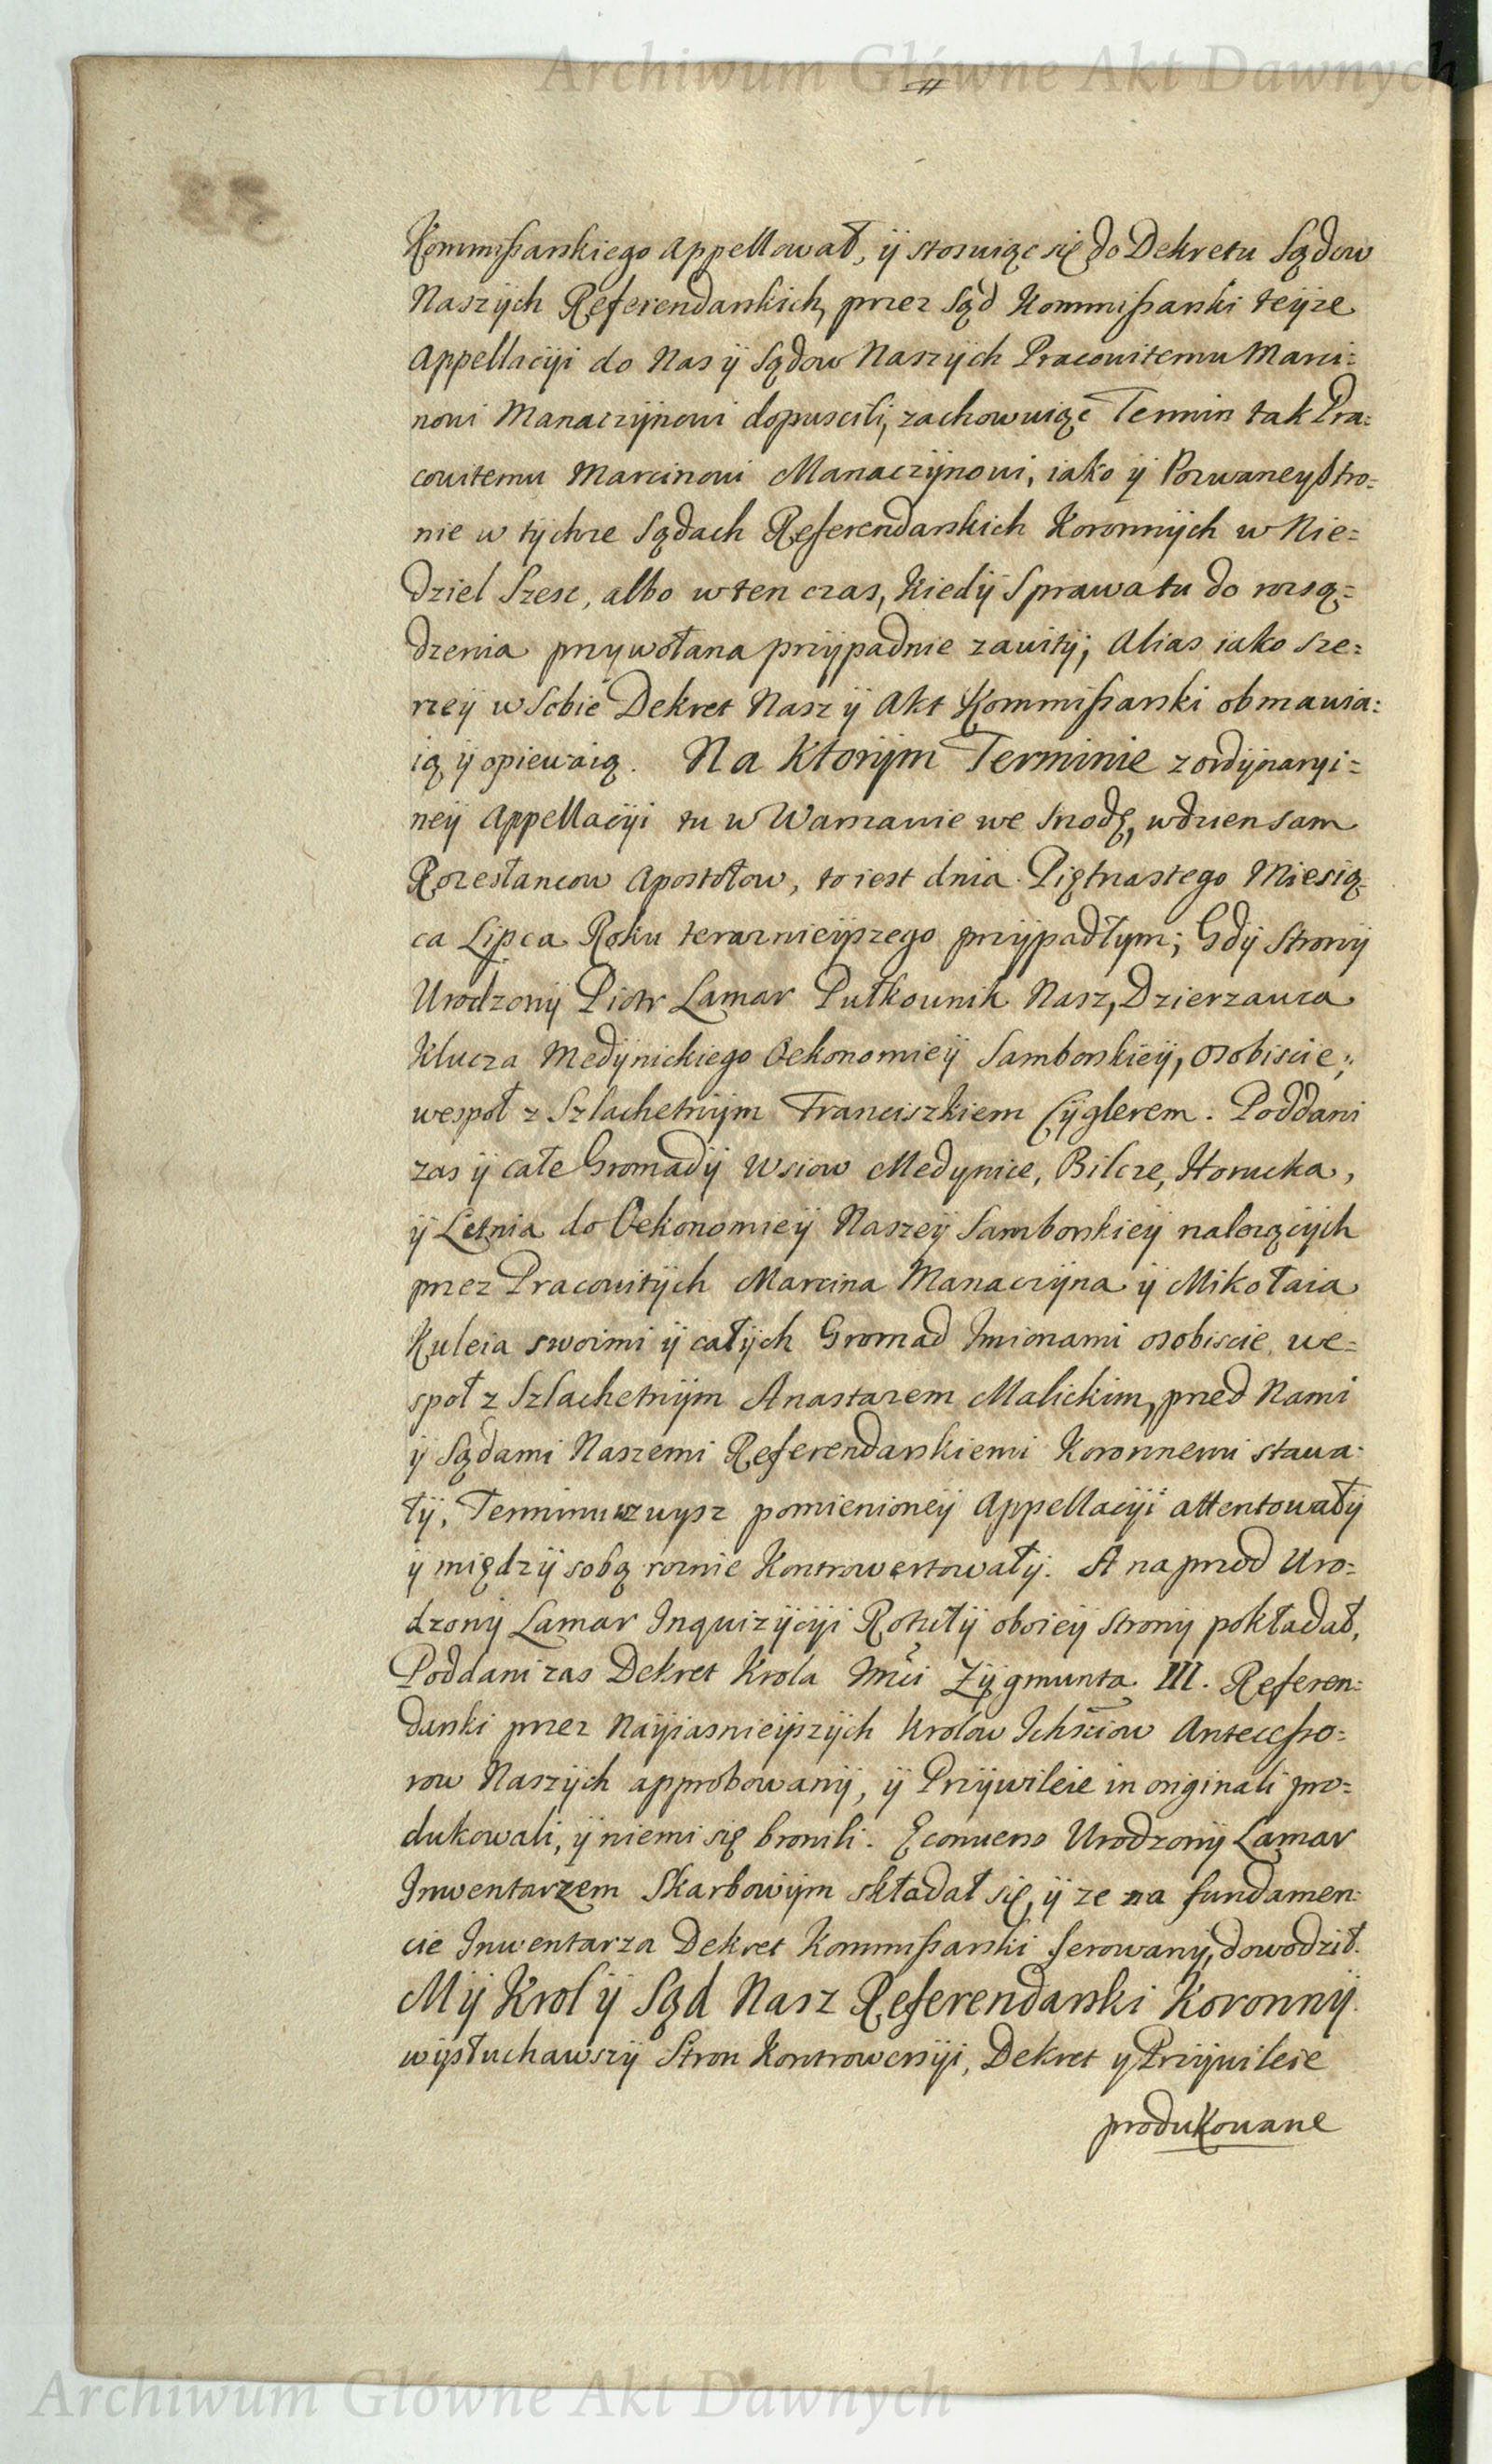 Archiwum Główne Akt Dawnych
Kommissarskiego Appellował, ÿ stosuiąc się do Dekretu Sądow
Naszÿch Referendarskich, przez Sąd Kommissarski teÿze
Appellacÿi do Nas ÿ Sądow Naszÿch Pracowitemu Marci=
nowi Manaczÿnowi dopuscili, zachowuiąc Termin tak Pra=
cowitemu Marcinowi Manaczÿnowi, iako ÿ Pozwaneÿ Stro=
nie w tÿchze Sądach Referendarskich Koronnÿch w Nie=
dziel Szesc, albo w ten czas, kiedÿ Sprawa tu do rozsą=
dzenia przywołana przÿpadnie zawitÿ; Alias iako sze=
rzeÿ w Sobie Dekret Nasz ÿ Akt Kommissarski obmawia=
ią ÿ opiewaią. Na Ktorÿm Terminie z ordÿnaryi=
neÿ Appellacÿi tu w Warszawie we Srodę, w dzien sam
Rozesłancow Apostołow, to iest dnia Piętnastego Miesią=
ca Lipca Roku teraznieÿszego przÿpadłym; Gdÿ Stronÿ
Urodzonÿ Piotr Lamar Pułkownik Nasz, Dzierzawca
Klucza Medÿnickiego Oekonomieÿ Samborskieÿ, osobiscie;
wespoł z Szlachetnÿm Franciszkiem Cÿglerem. Poddani
zas ÿ całe Gromadÿ Wsiow Medynice, Bilcze, Horucka,
ÿ Letnia do Oekonomieÿ Naszeÿ Samborskieÿ nalezącÿch
przez Pracowitÿch Marcina Manaczÿna ÿ Mikołaia
Kuleia swoimi ÿ całÿch Gromad Imionami osobiscie, we=
społ z Szlachetnÿm Anastazem Malickim, przed Nami
ÿ Sądami Naszemi Referendarskiemi Koronnemi stawa=
łÿ, Terminu zwysz pomienioneÿ Appellacÿi attentowałÿ
ÿ międzÿ sobą roznie Kontrowertowałÿ. A naprzod Uro=
dzonÿ Lamar Inquizÿcÿi Rotułÿ oboieÿ Stronÿ pokładał,
Poddani zas Dekret Krola Jmci Zÿgmunta III. Referen=
darski przez Naÿiasnieÿszÿch Krolow Ichmciow Antecesso=
row Naszÿch approbowanÿ, ÿ Przÿwileie in originali pro=
dukowali, ÿ niemi się bronili. Econuerso Urodzonÿ Lamar
Inwentarzem Skarbowÿm składał się, ÿ ze na fundamen=
cie Inwentarza Dekret Kommissarski ferowany, dowodził.
Mÿ Krol ÿ Sąd Nasz Referendarski Koronnÿ
wÿsłuchawszÿ Stron Kontrowersÿi, Dekret y Przÿwileie
produkowane
Archiwum Główne Akt Dawnych